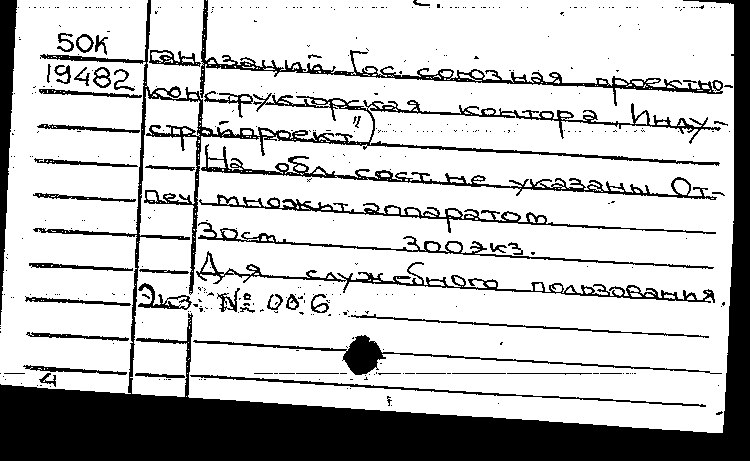 2.
50К
ганизаций. Гос. союзная проектно-
19482
конструкторская контора „Инду-
стройпроект")
На обл. сост. не указаны. От-
печ. множит. аппаратом.
30 см. 300 экз.
Для служебного пользования.
Экз. № 006
4